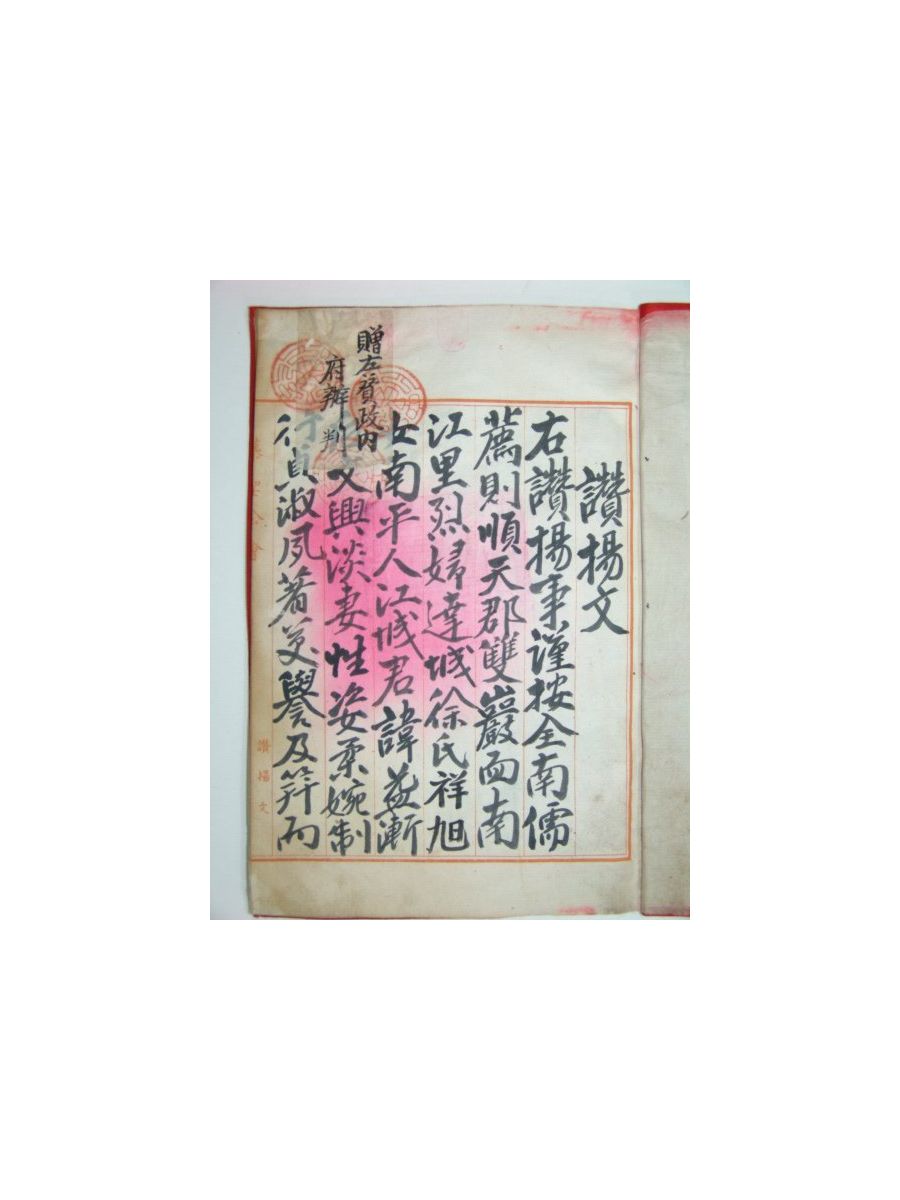 讚揚文
右讚揚事謹按全南儒
薦則順天郡雙巖面南
江里烈婦達城徐氏祥旭
女南平人江城君諱益漸
文興淡妻性姿柔婉制
行貞淑夙著芝譽及笄而
贈左贊政內
府辦判
讚揚文